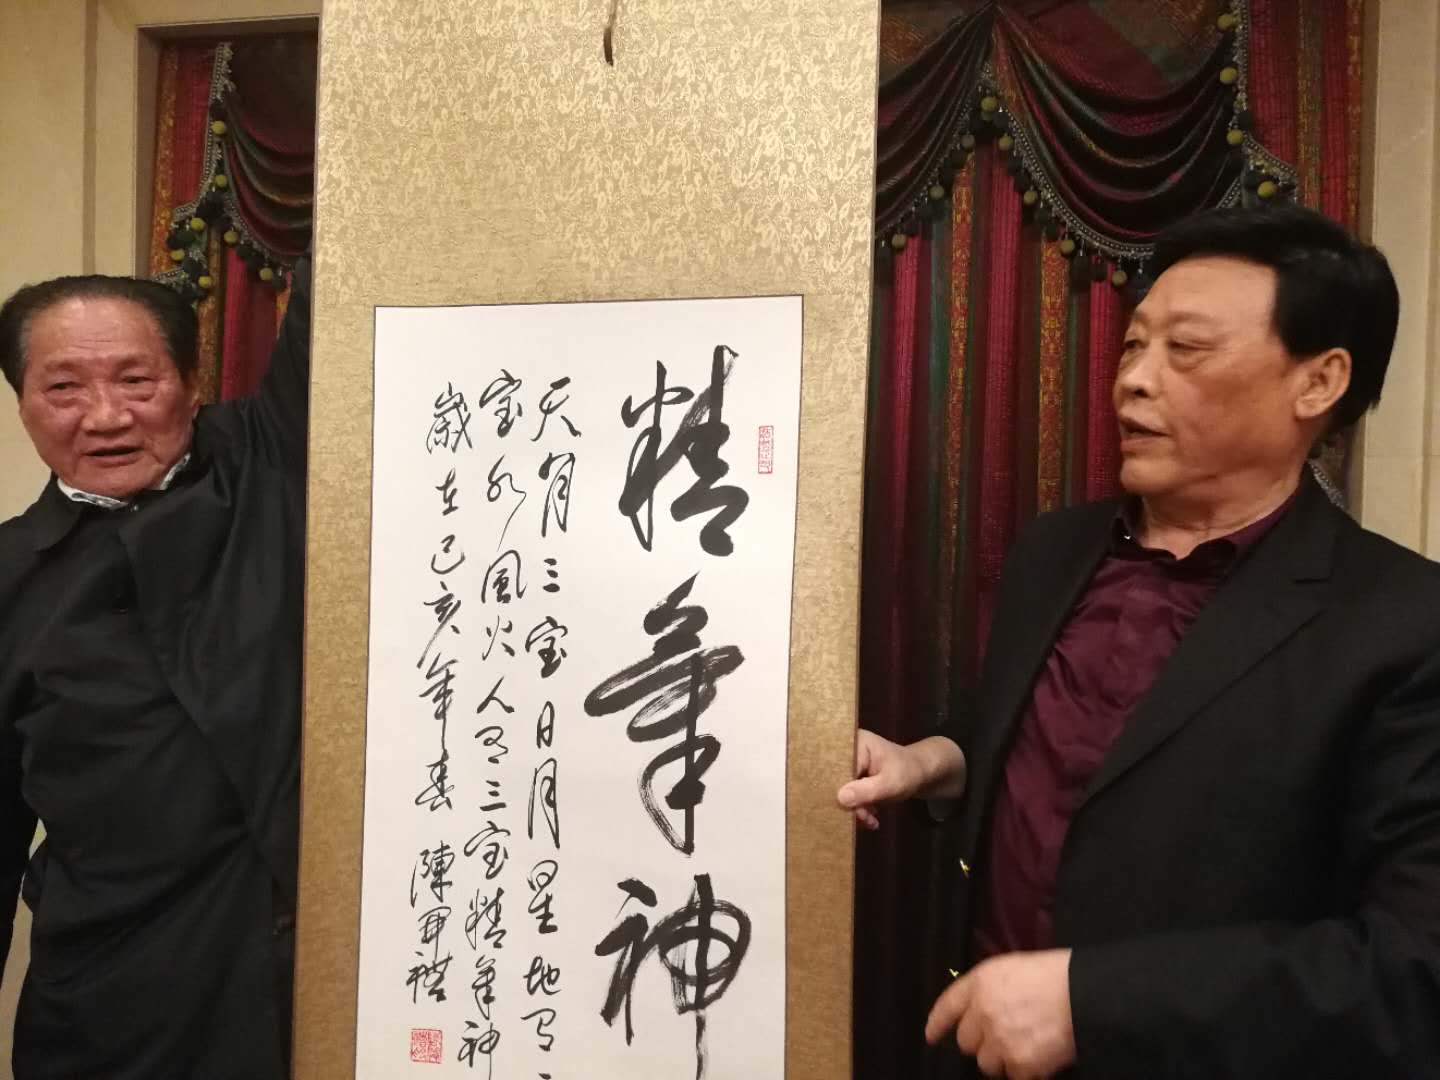 精氣神
天有三宝日月星地有
宝水風火人有三宝精氣神
歲在己亥年春 陳